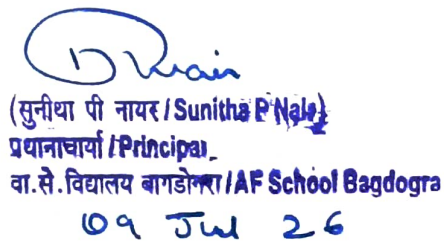 (सुनीथा पी नायर / Sunitha P Nair)
प्रधानाचार्या / Principal
वा.से.विद्यालय बागडोगरा / AF School Bagdogra
09 Jul 26